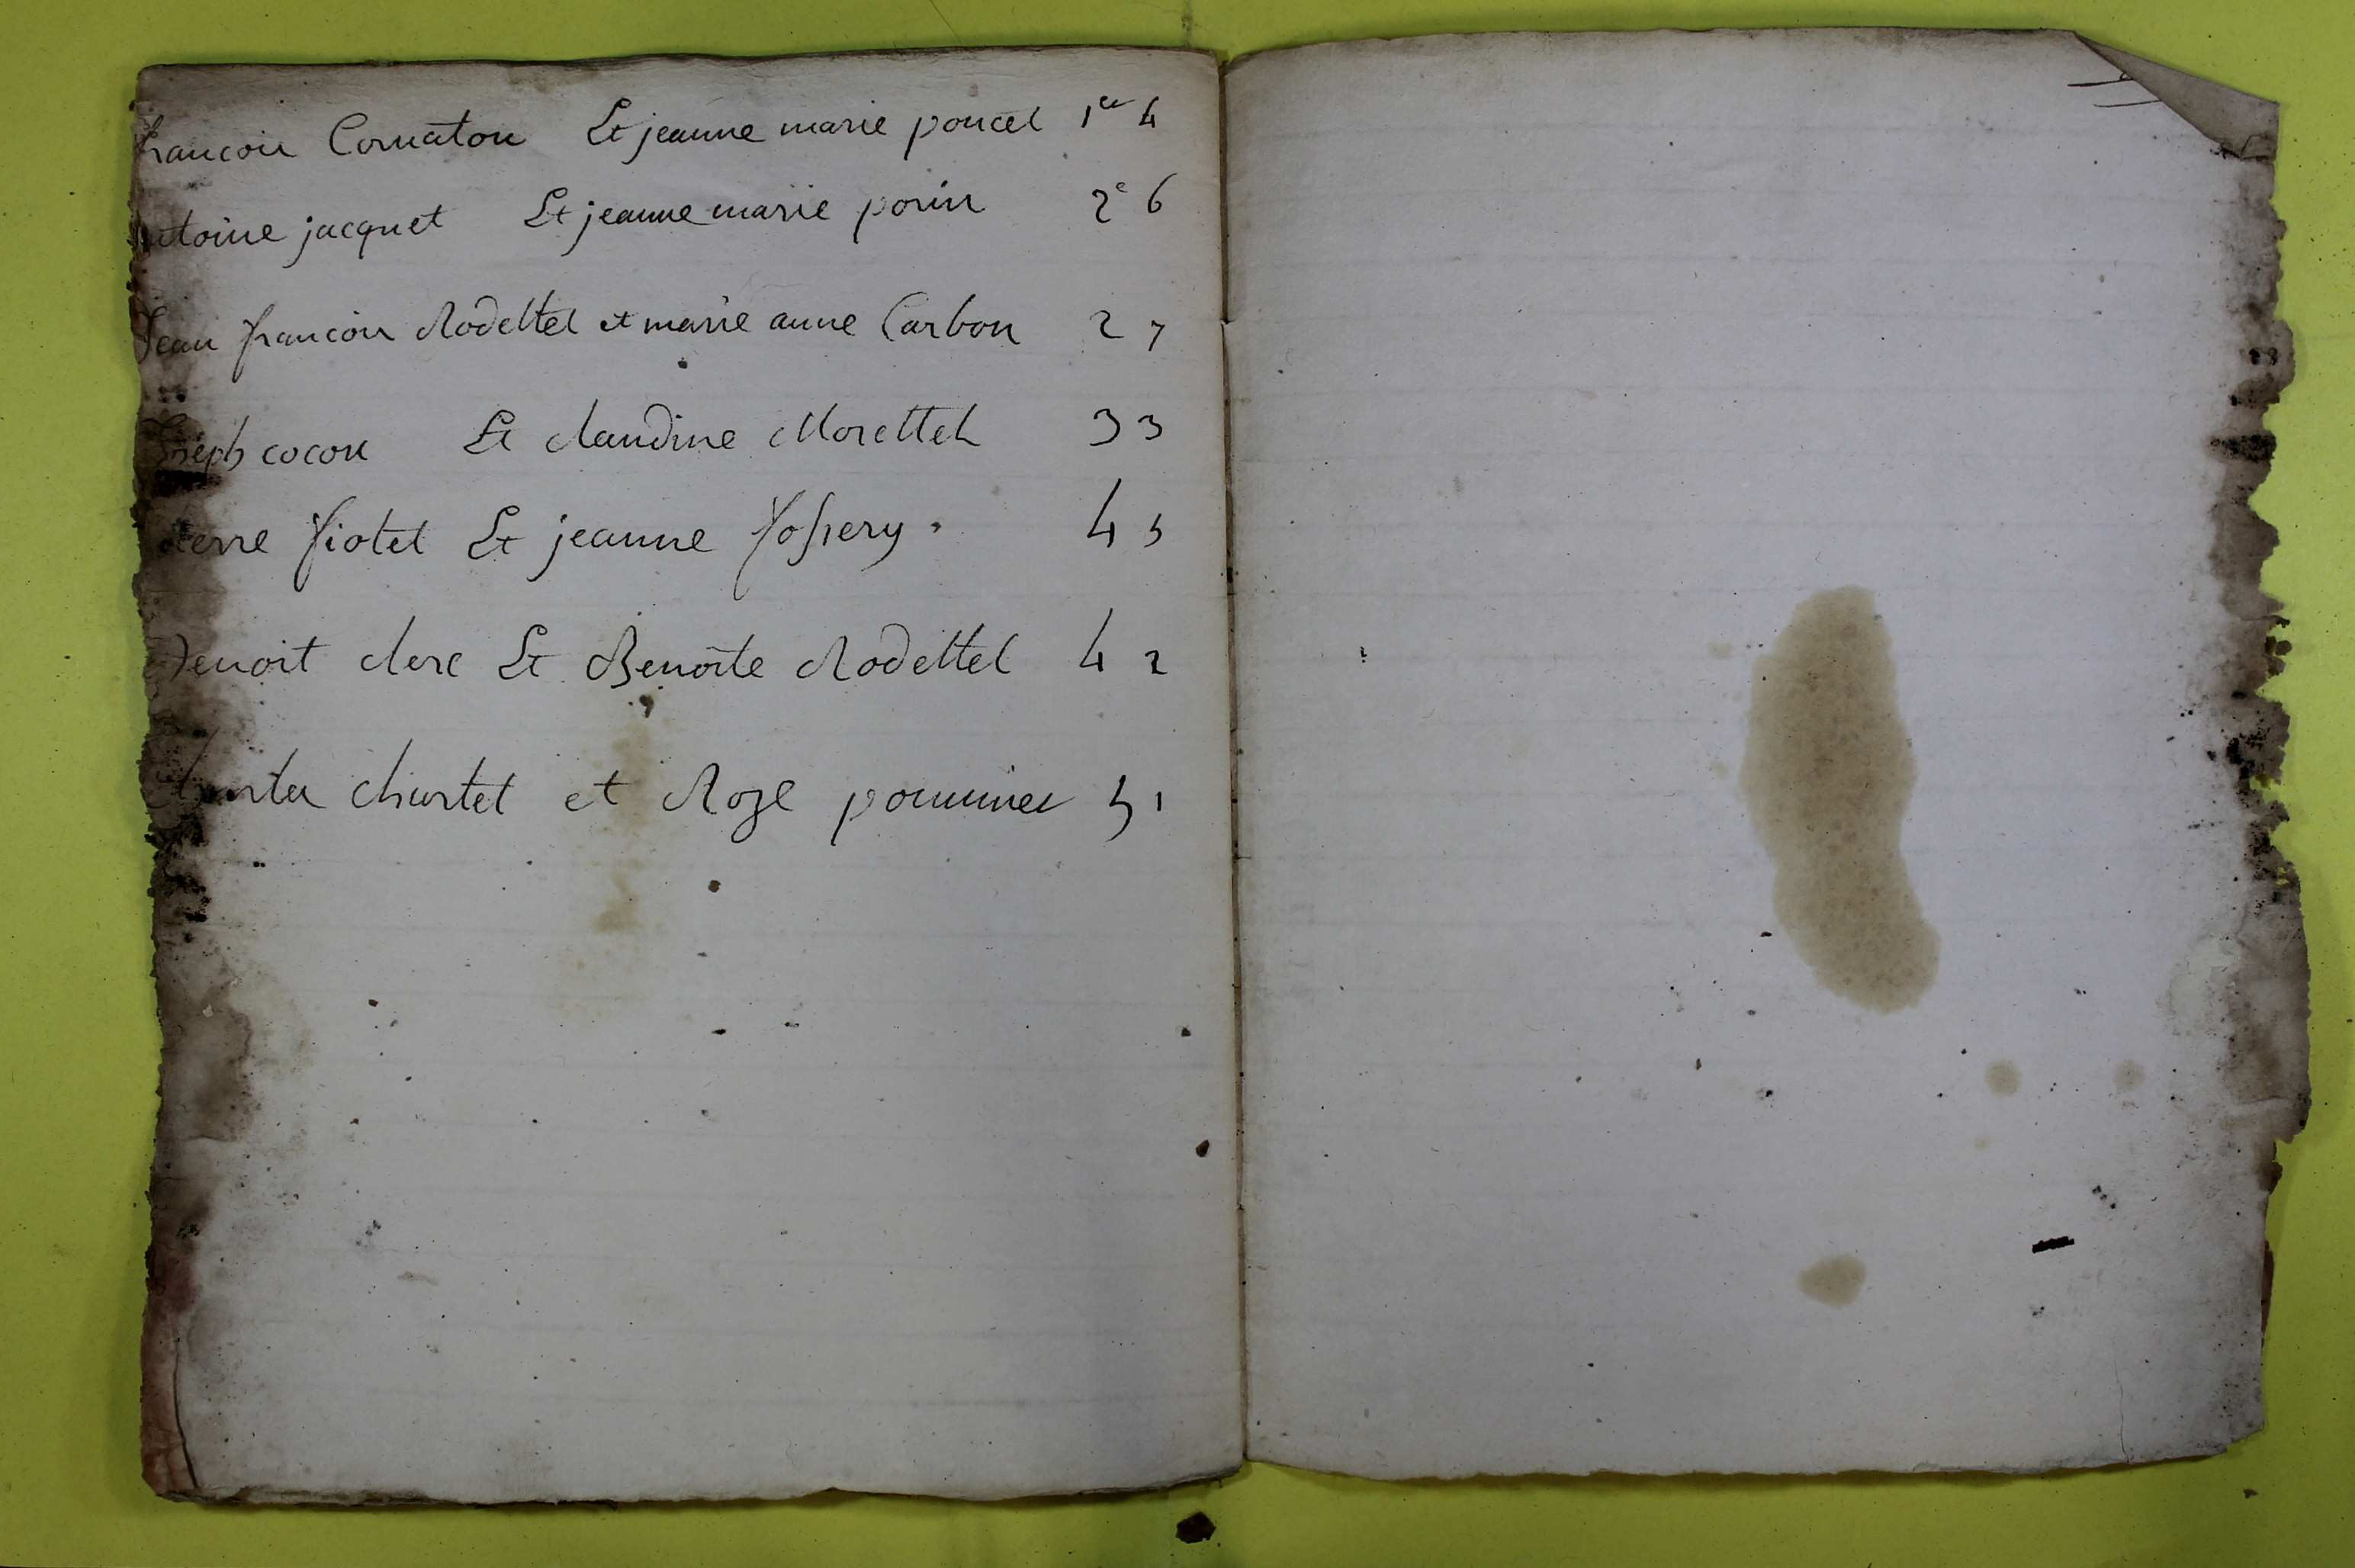 francois Cornaton Et jeanne marie poncet 1er 4
antoine jacquet Et jeanne marie porin 2e 6
Jean francois Rodettet et marie anne Carbon 2 7
Joseph cocon Et claudine Morettet 3 3
pierre fiotet Et jeanne fossery 4 5
Benoit clerc Et Benoite Rodettet 4 2
Charles chartet et Roze pommier 5 1